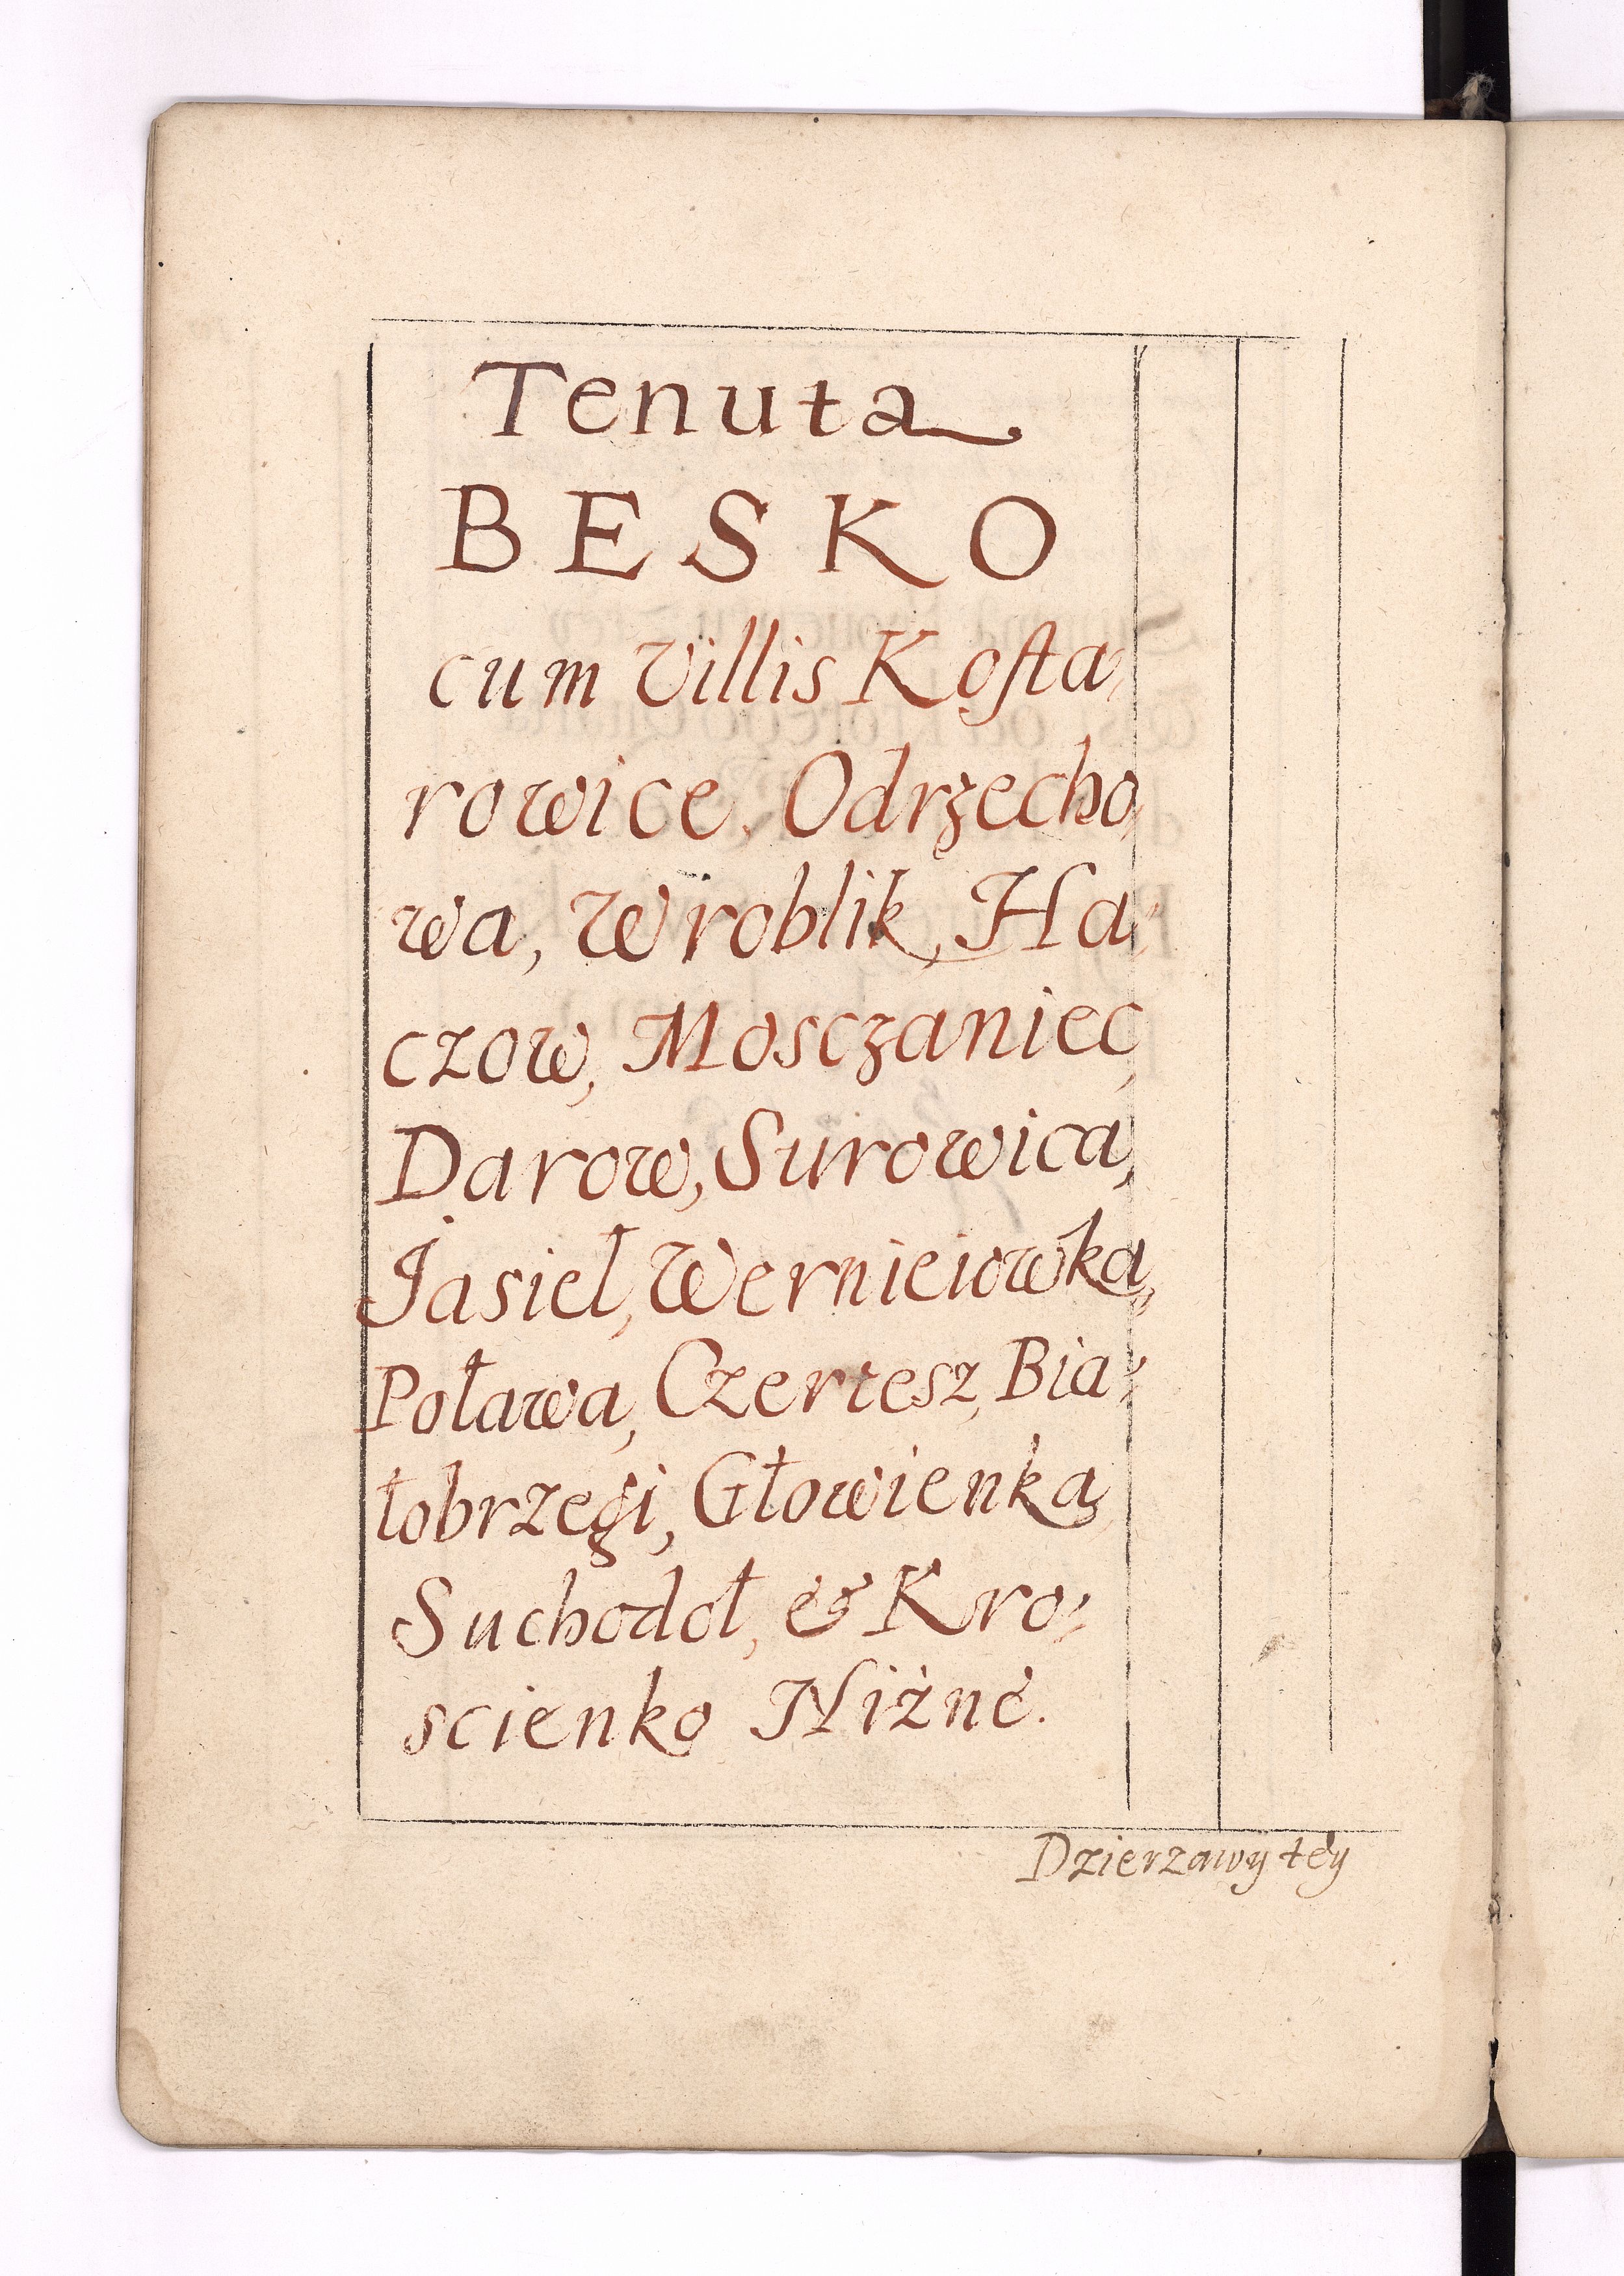 Tenuta
BESKO
cum Villis Kosta,
rowice, Odrzecho,
wa, Wroblik, Ha,
czow, Mosczaniec,
Darow, Surowica,
Jasieł, Wernieiowka,
Poława, Czertesz, Bia,
łobrzegi, Głowienka,
Suchodoł, & Kro,
scienko Niżne.
Dzierzawy téy